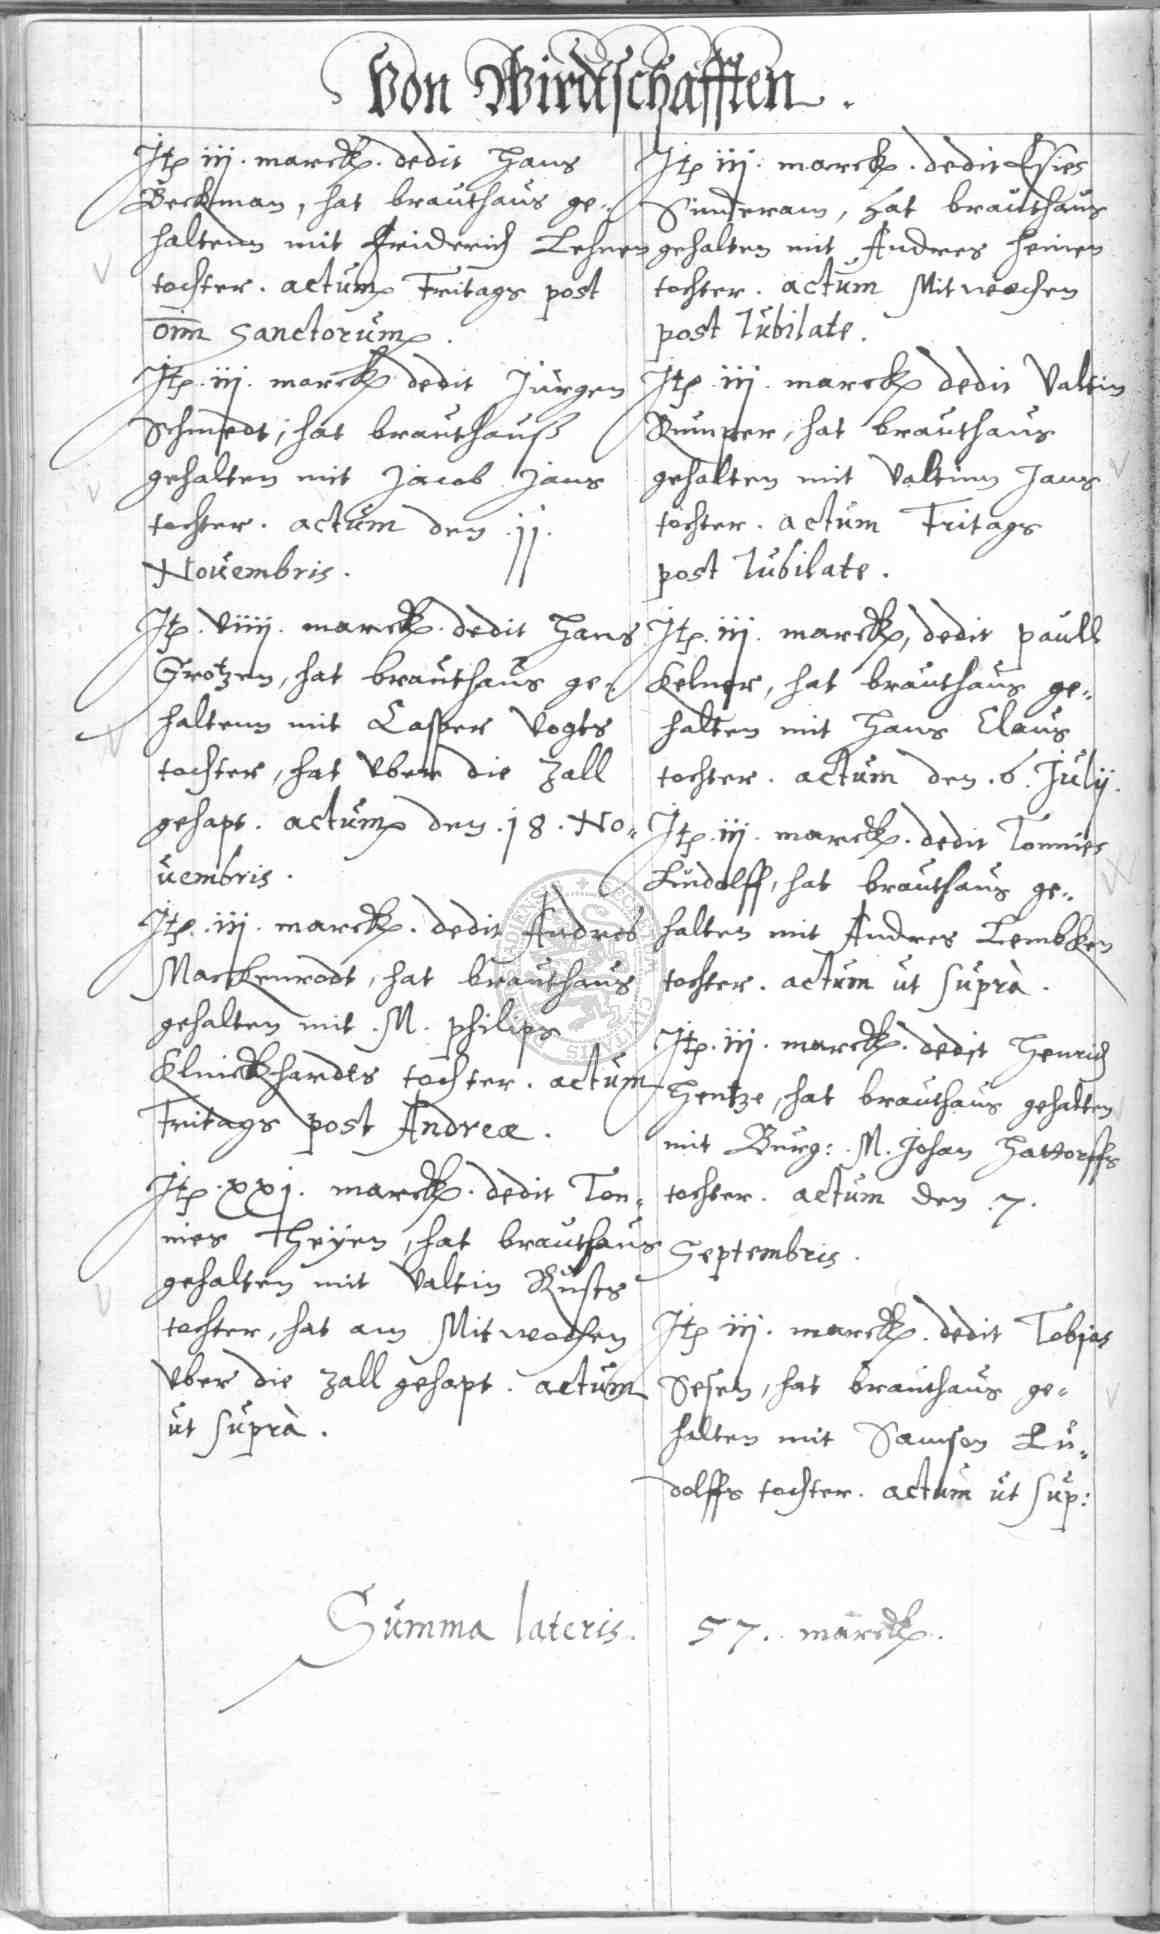 Von Wirdtschafften.
Itp iij. marck. dedit Hans
Beckman, hat brauthaus ge-
haltenn mit Friderich Lehnen
tochter. actum Fritags post
oim sanctorum.
Itp. iij. marck dedit Jürgen
Schmedt, hat brauthauß
gehalten mit Jacob Jans
tochter. actum den .11.
Novembris.
Itp. viiij. marck. dedit Hans
Grotzen, hat brauthaus ge-
haltenn mit Casper Vogts
tochter, hat vber die zall
gehapt. actum den .18. No-
uembris.
Itp. iij. marck. dedit Andres
Mackenrodt, hat brauthaus
gehalten mit .M. philips
Klinckhardts tochter. actum
Fritags post Andreæ.
Itp. xxj. marck. dedit Ton-
nies Heyen, hat brauthaus
gehalten mit Valtin Rusts
tochter, hat am Mitwochen
vber die zall gehapt. actum
ut suprà.
Itp iij. marck. dedit
Sinderam, hat brauthaus
gehalten mit Andres Heinen
tochter. actum Mitwochen
post Iubilate.
Itp. iij. marck dedit Valtin
hat brauthaus
gehalten mit Valtinn Jans
tochter. actum Fritags
post Iubilate.
Itp. iij. marck, dedit paull
Kelner, hat brauthaus ge-
halten mit Hans Claus
tochter. actum den .6. Julij.
Itp. iij. marck. dedit Tonnies
Ludolff, hat brauthaus ge-
halten mit Andres Lembken
tochter. actum ut suprà.
Itp. iij. marck. dedit Henrich
Hentze, hat brauthaus gehalten
mit Burg: M. Johan Hattorffs
tochter. actum den .7.
Septembris.
Itp iij. marck. dedit Tobias
Sesen, hat brauthaus ge-
halten mit Samson Lu-
dolffs tochter. actum ut sup:
Summa lateris. 57. marck.